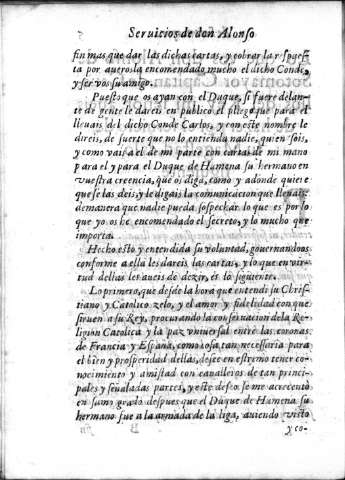 Seruicios de don Alonso
fin mas que dar las dichas cartas, y cobrar la respuesta
ta por aueros la encomendado mucho el dicho Conde,
y ser vos su amigo.
Puesto que os ayan con el Duque, si fuere delante
de gente le dareis en publico el pliego que para el
lleuais del dicho Conde Carlos, y con este nombre le
direis, de suerte que no lo entienda nadie, quien sois,
y como vais a el de mi parte con cartas de mi mano
para el y para el Duque de Humena su hermano en
vuestra creencia, que os diga, como y adonde quiere
que se las deis, y le digais la comunicacion que lleuais
de manera que nadie pueda sospechar lo que es por lo
que yo os he encomendado el secreto, y lo mucho que
importa.
Hecho esto y entendida su voluntad, gouernandoos
conforme a ella les dareis las cartas, y lo que en vir-
tud dellas les aueis de dezir, es lo siguiente.
Lo primero, que desde la hora que entendi su Chris-
tiano y Catolico zelo, y el amor y fidelidad con que
siruen a su Rey, procurando la conseruacion de la Re-
ligion Catolica y la paz vniuersal entre las coronas
de Francia y España, como cosa tan necessaria para
el bien y prosperidad dellas, desee en estremo tener co-
nocimiento y amistad con caualleros de tan princi-
pales y señaladas partes, y este deseo se me acrecentò
en sumo grado despues que el Duque de Humena su
hermano fue a la armada de la liga, auiendo visto
y co-